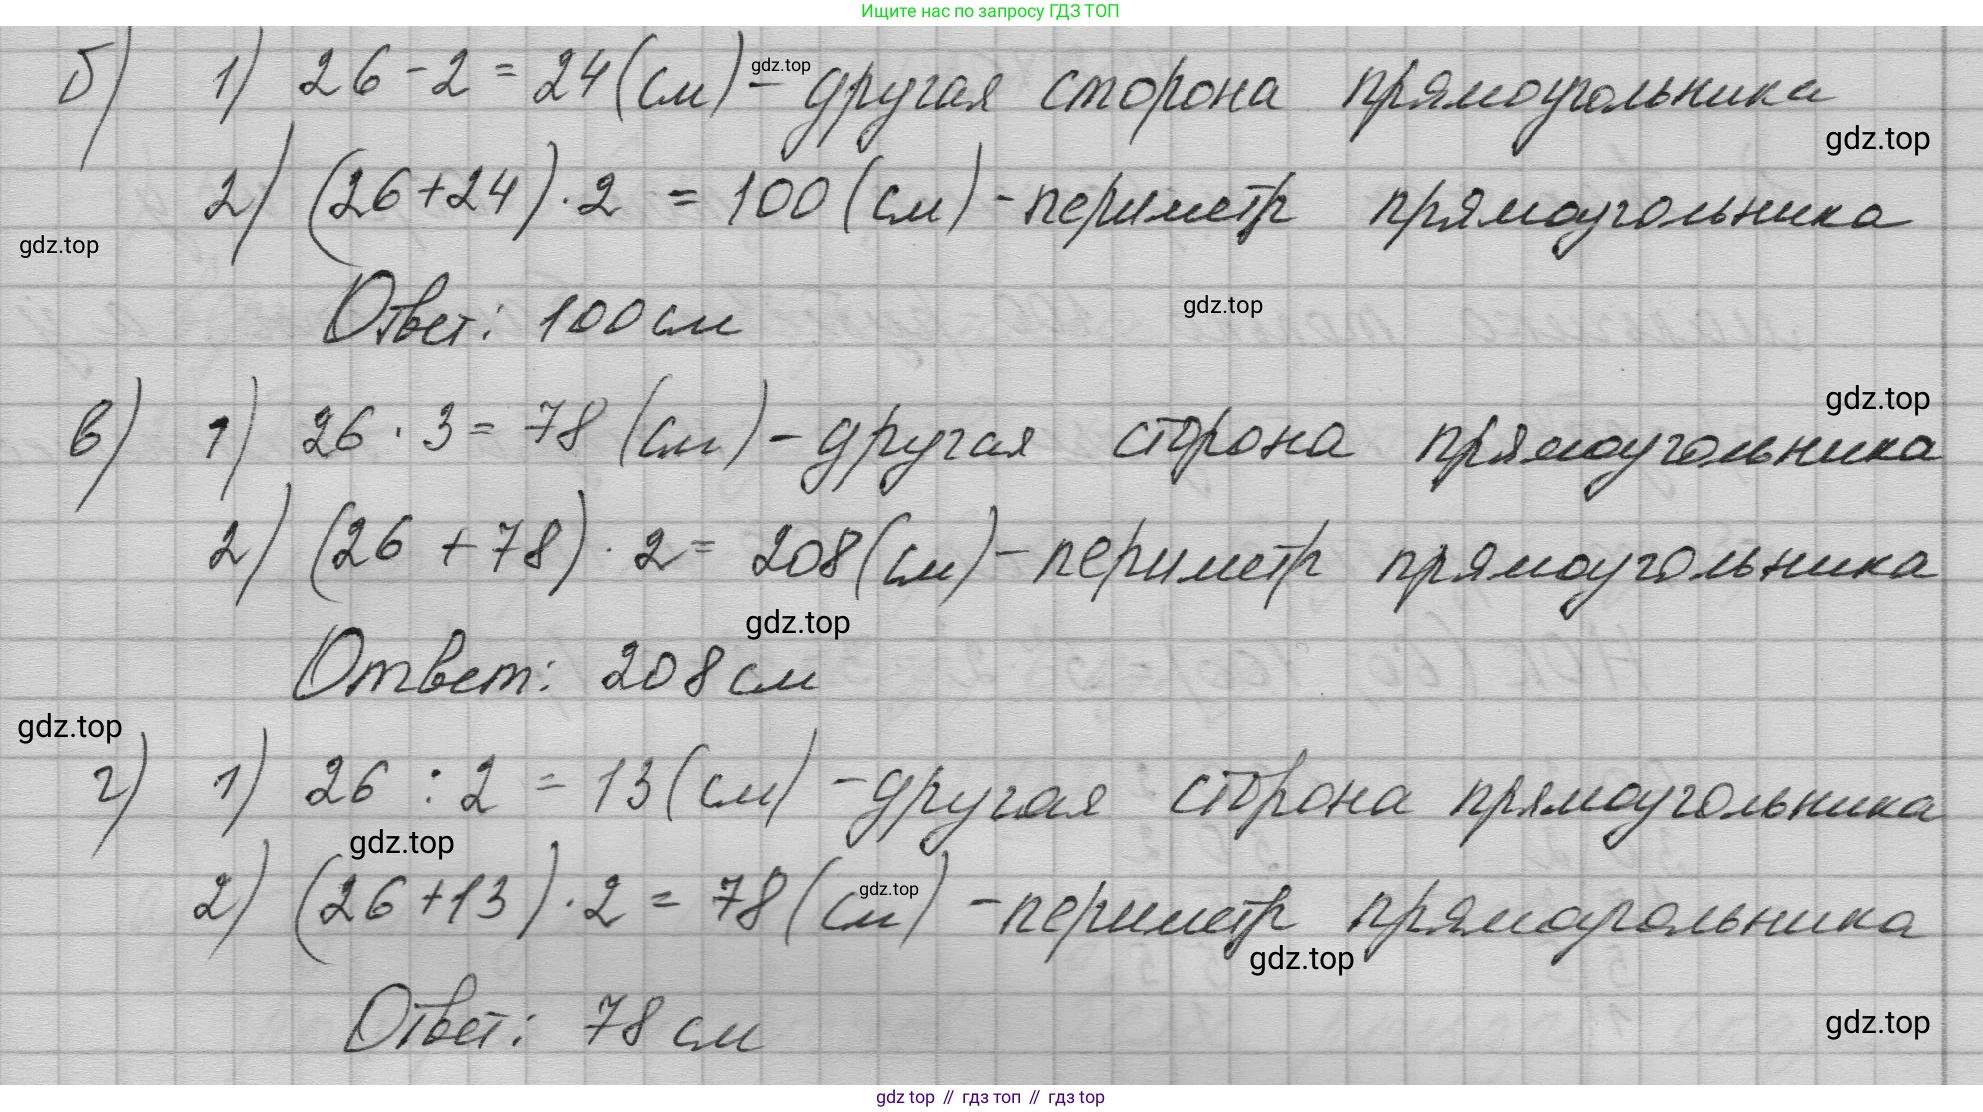 Ищите нас по запросу ГДЗ ТОП
б) 1) 26 - 2 = 24 (см) - другая сторона прямоугольника
gdz.top
gdz.top
2) (26 + 24) · 2 = 100 (см) - периметр прямоугольника
gdz.top
Ответ: 100 см
gdz.top
gdz.top
в) 1) 26 · 3 = 78 (см) - другая сторона прямоугольника
2) (26 + 78) · 2 = 208 (см) - периметр прямоугольника
gdz.top
Ответ: 208 см
gdz.top
г) 1) 26 : 2 = 13 (см) - другая сторона прямоугольника
gdz.top
2) (26 + 13) · 2 = 78 (см) - периметр прямоугольника
gdz.top
gdz.top
Ответ: 78 см
gdz.top
gdz top // гдз топ // гдз top